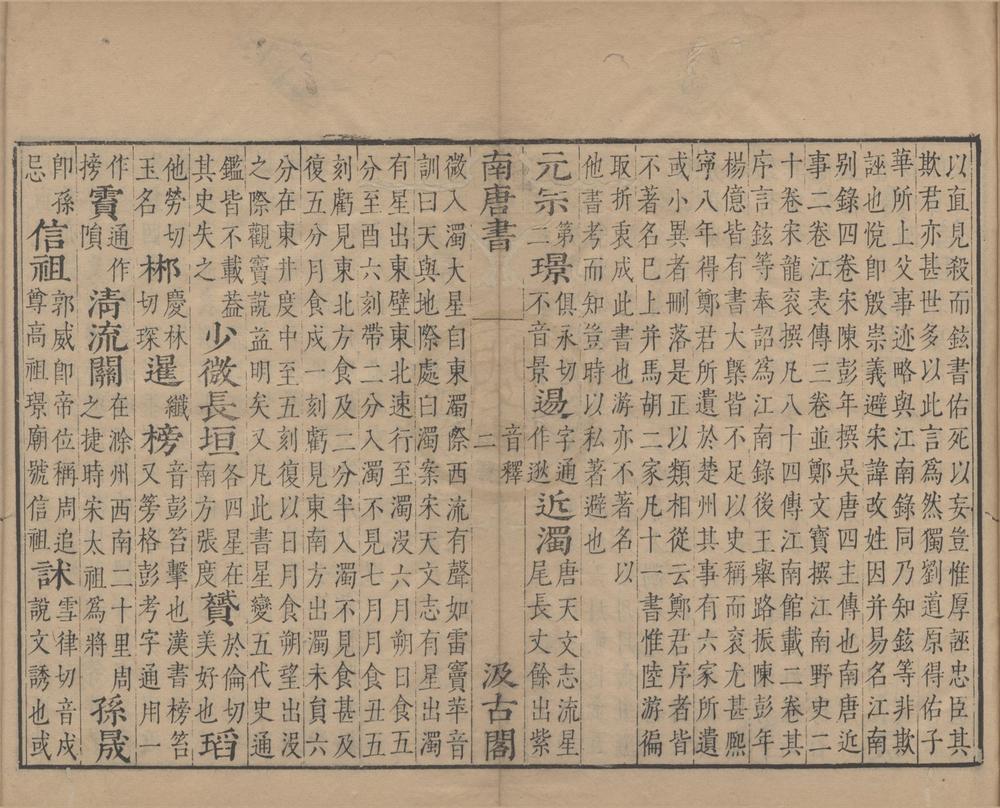 以直見殺而鉉書佑死以妄豈惟厚誣忠臣其
欺君亦甚世多以此言爲然獨劉道原得佑子
華所上父事迹略與江南錄同乃知鉉等非欺
誣也悅卽殷崇義避宋諱改姓因并易名江南
别錄四卷宋陳彭年撰吳唐四主傳也南唐近
事二卷江表傳三卷並鄭文寶撰江南野史二
十卷宋龍衮撰凡八十四傳江南館載二卷其
序言鉉等奉詔爲江南錄後王舉路振陳彭年
楊億皆有書大槩皆不足以史稱而衮尤甚熈
寧八年得鄭君所遺於楚州其事有六家所遺
或小異者刪落是正以類相從云鄭君序者皆
不著名巳上并馬胡二家凡十一書惟陸游徧
取折衷成此書也游亦不著名以
他書考而知豈時以私著避也
元宗第二璟俱永切不音景逷字通作逖近濁唐天文志流星尾長丈餘出紫
南唐書 音釋 二 汲古閣
微入濁大星自東濁際西流有聲如雷竇苹音
訓曰天與地際處曰濁案宋天文志有星出濁
有星出東壁東北速行至濁没六月朔日食五
分至酉六刻帶二分入濁不見七月月食丑五
刻虧見東北方食及二分半入濁不見食甚及
復五分月食戌一刻虧見東南方出濁未負六
分在東井度中至五刻復以日月食朔望出没
之際觀竇說益明矣又凡此書星變五代史通
鑑皆不載葢其史失之少微長垣各四星在於南方張度贇倫切美好也瑫
他勞切玉名郴慶林切琛暹纖榜音彭笞擊也漢書榜笞又篣格彭考字通用一
作通作搒霣隕清流關在滁州西南二十里周之捷時宋太祖爲將孫晟
卽孫忌信祖郭威卽帝位稱周追尊高祖璟廟號信祖訹雪律切音戌說文誘也或